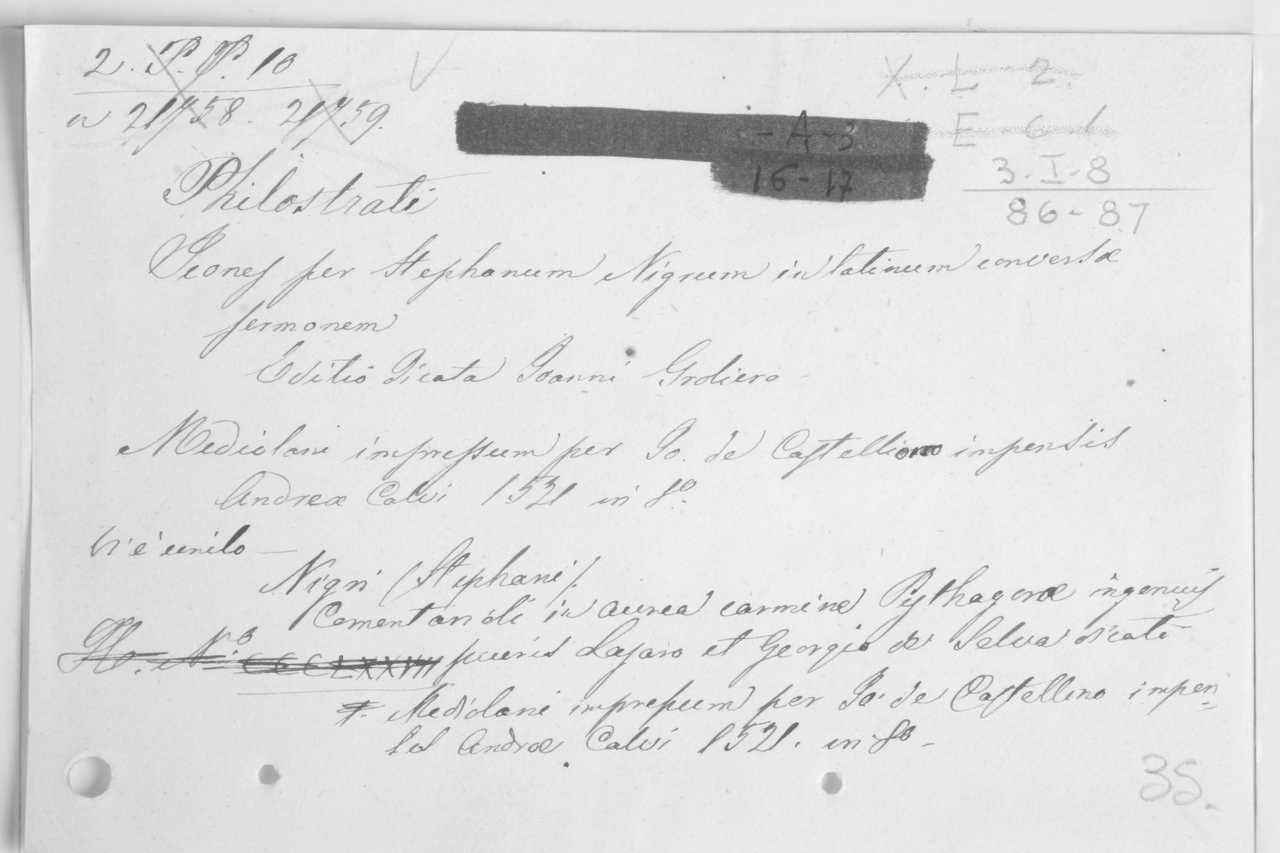 2. P. P. 10
n 21758. 21759.
V
X. L 2.
E 6 1
- A - 3
16 - 17
3 - I - 8
86 - 87
Philostrati
Icones per Stephanum Nigrum in latinum conversæ
sermonem
Editio dicata Joanni Groliero
Mediolani impressum per Jo. de Castelliono impensis
Andreæ Calvi 1521 in 8º.
Vi è unito —
Nigri (Stephani).
Comentarioli in aurea carmina Pythagoræ ingenuis
pueris Lazaro et Georgio de Selva dicati
Nº CCCCLXXVIII
Mediolani impressum per Jo. de Castellino impen=
sis Andræ Calvi 1521. in 8º -
35.